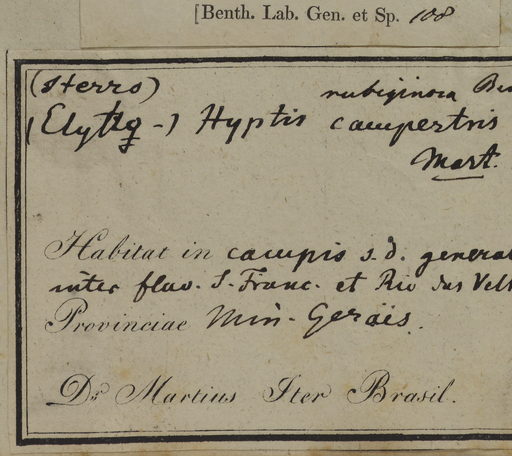 [Benth. Lab. Gen. et Sp. 108
(sterro)
rubiginosa
Hyptis campestris
Mart.
Habitat in campis s.d. general
inter fluv. S. Franc. et Rio das Velh
Provinciae Min-Geraës.
Dr Martius Iter Brasil.